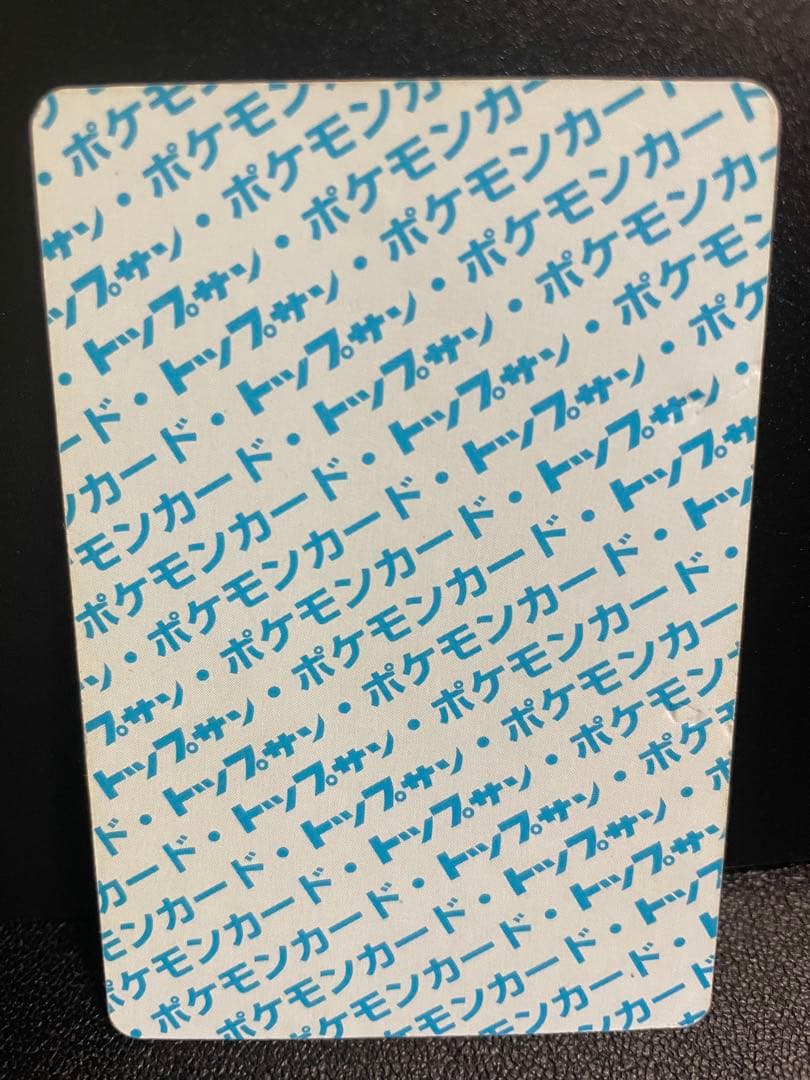 ・ポケモ
サン・ポケモン
トップサン・ポケモンカ
・トップサン・ポケモンカー
ード・トップサン・ポケモンカード
ンカード・トップサン・ポケモンカード
モンカード・トップサン・ポケモンカー
ポケモンカード・トップサン・ポケモン
ン・ポケモンカード・トップサン・ポケ
プサン・ポケモンカード・トップサン・
トップサン・ポケモンカード・トップサ
ド・トップサン・ポケモンカード・トッ
カード・トップサン・ポケモンカード・
モンカード・トップサン・ポケモンカー
ケモンカード・トップサン・ポケモン
・ポケモンカード・トップサン・ポケ
ポケモンカード・トップサン・ポ
ケモンカード・トップサン
ンカード・トッ
カード・